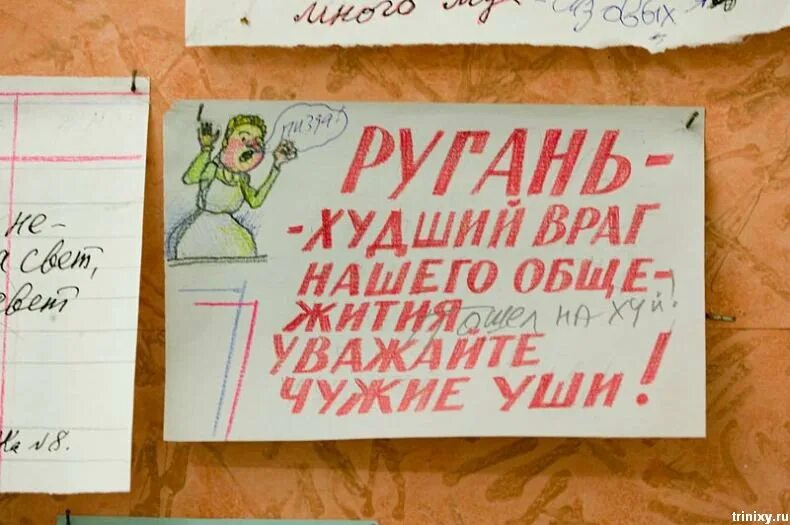 много
азовых
не-
свет,
№8.
ПИЗДА!
РУГАНЬ-
-ХУДШИЙ ВРАГ
НАШЕГО ОБЩЕ-
ЖИТИЯ
пошел НА ХУЙ!
УВАЖАЙТЕ
ЧУЖИЕ УШИ!
trinixy.ru